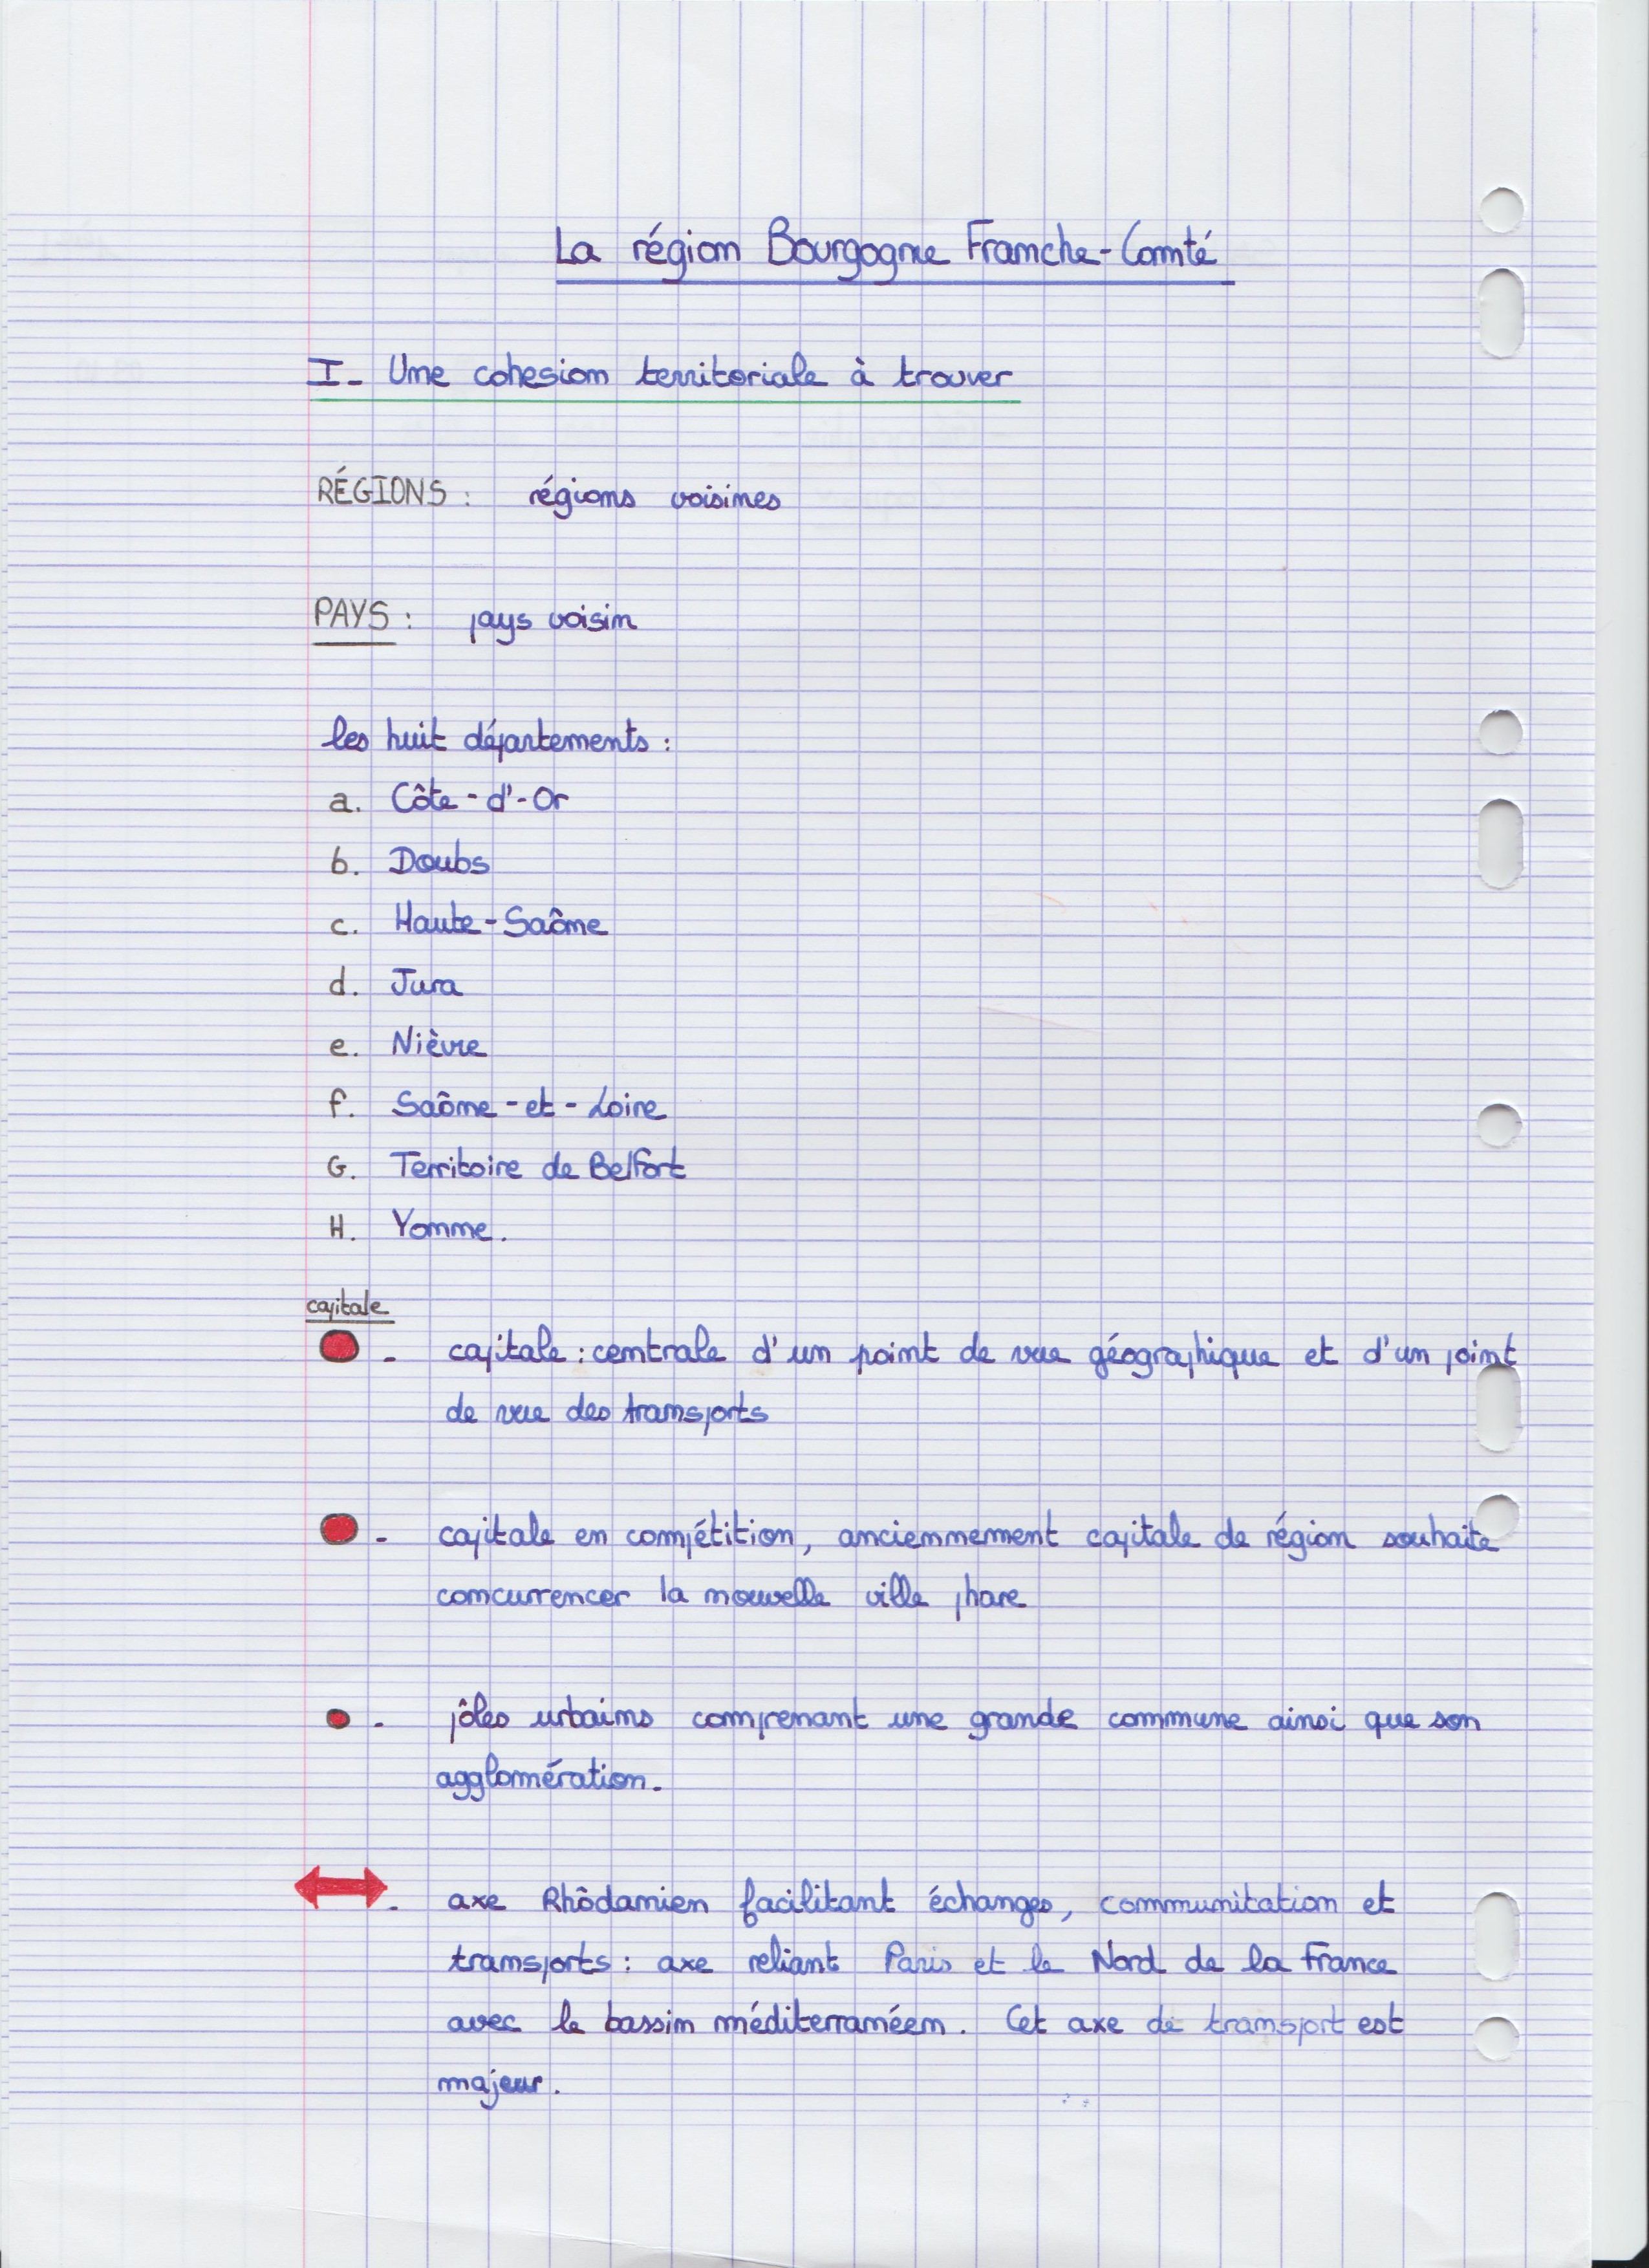 La région Bourgogne Franche-Comté
I- Une cohesion territoriale à trouver
RÉGIONS : régions voisines
PAYS : pays voisin
les huit départements :
a. Côte-d'-Or
b. Doubs
c. Haute-Saône
d. Jura
e. Nièvre
f. Saône-et-Loire
G. Territoire de Belfort
H. Yonne.
capitale
- capitale : centrale d'un point de vue géographique et d'un point
de vue des transports
- capitale en compétition, anciennement capitale de région souhaite
concurrencer la nouvelle ville phare
- pôles urbains comprenant une grande commune ainsi que son
agglomération.
- axe Rhôdanien facilitant échanges, communitation et
transports : axe reliant Paris et le Nord de la France
avec le bassin méditerranéen. Cet axe de transport est
majeur.